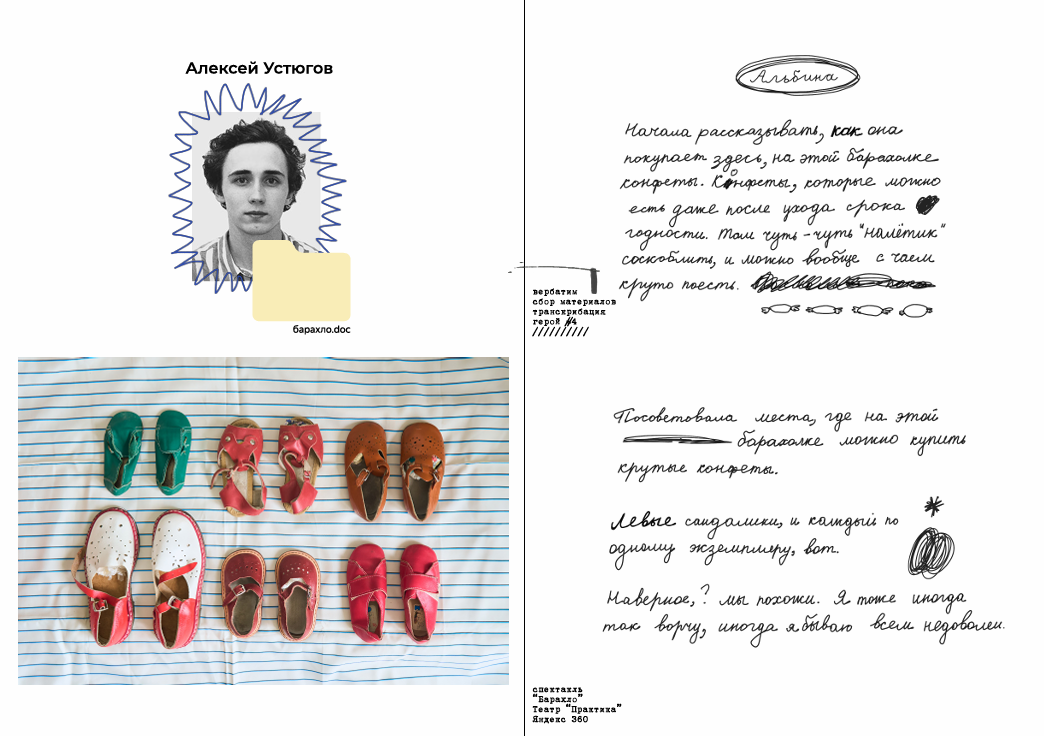 Алексей Устюгов
барахло.doc
Альбина
Начала рассказывать, как она
покупает здесь, на этой барахолке
конфеты. Конфеты, которые можно
есть даже после ухода срока
годности. Там чуть-чуть "налётик"
соскоблить, и можно вообще с чаем
круто поесть.
вербатим
сбор материалов
транскрибация
герой №4
//////////
Посоветовала места, где на этой
барахолке можно купить
крутые конфеты.
Левые сандалики, и каждый по *
одному экземпляру, вот.
Наверное,? мы похожи. Я тоже иногда
так ворчу, иногда я бываю всем недоволен.
спектакль
"Барахло"
Театр "Практика"
Яндекс 360